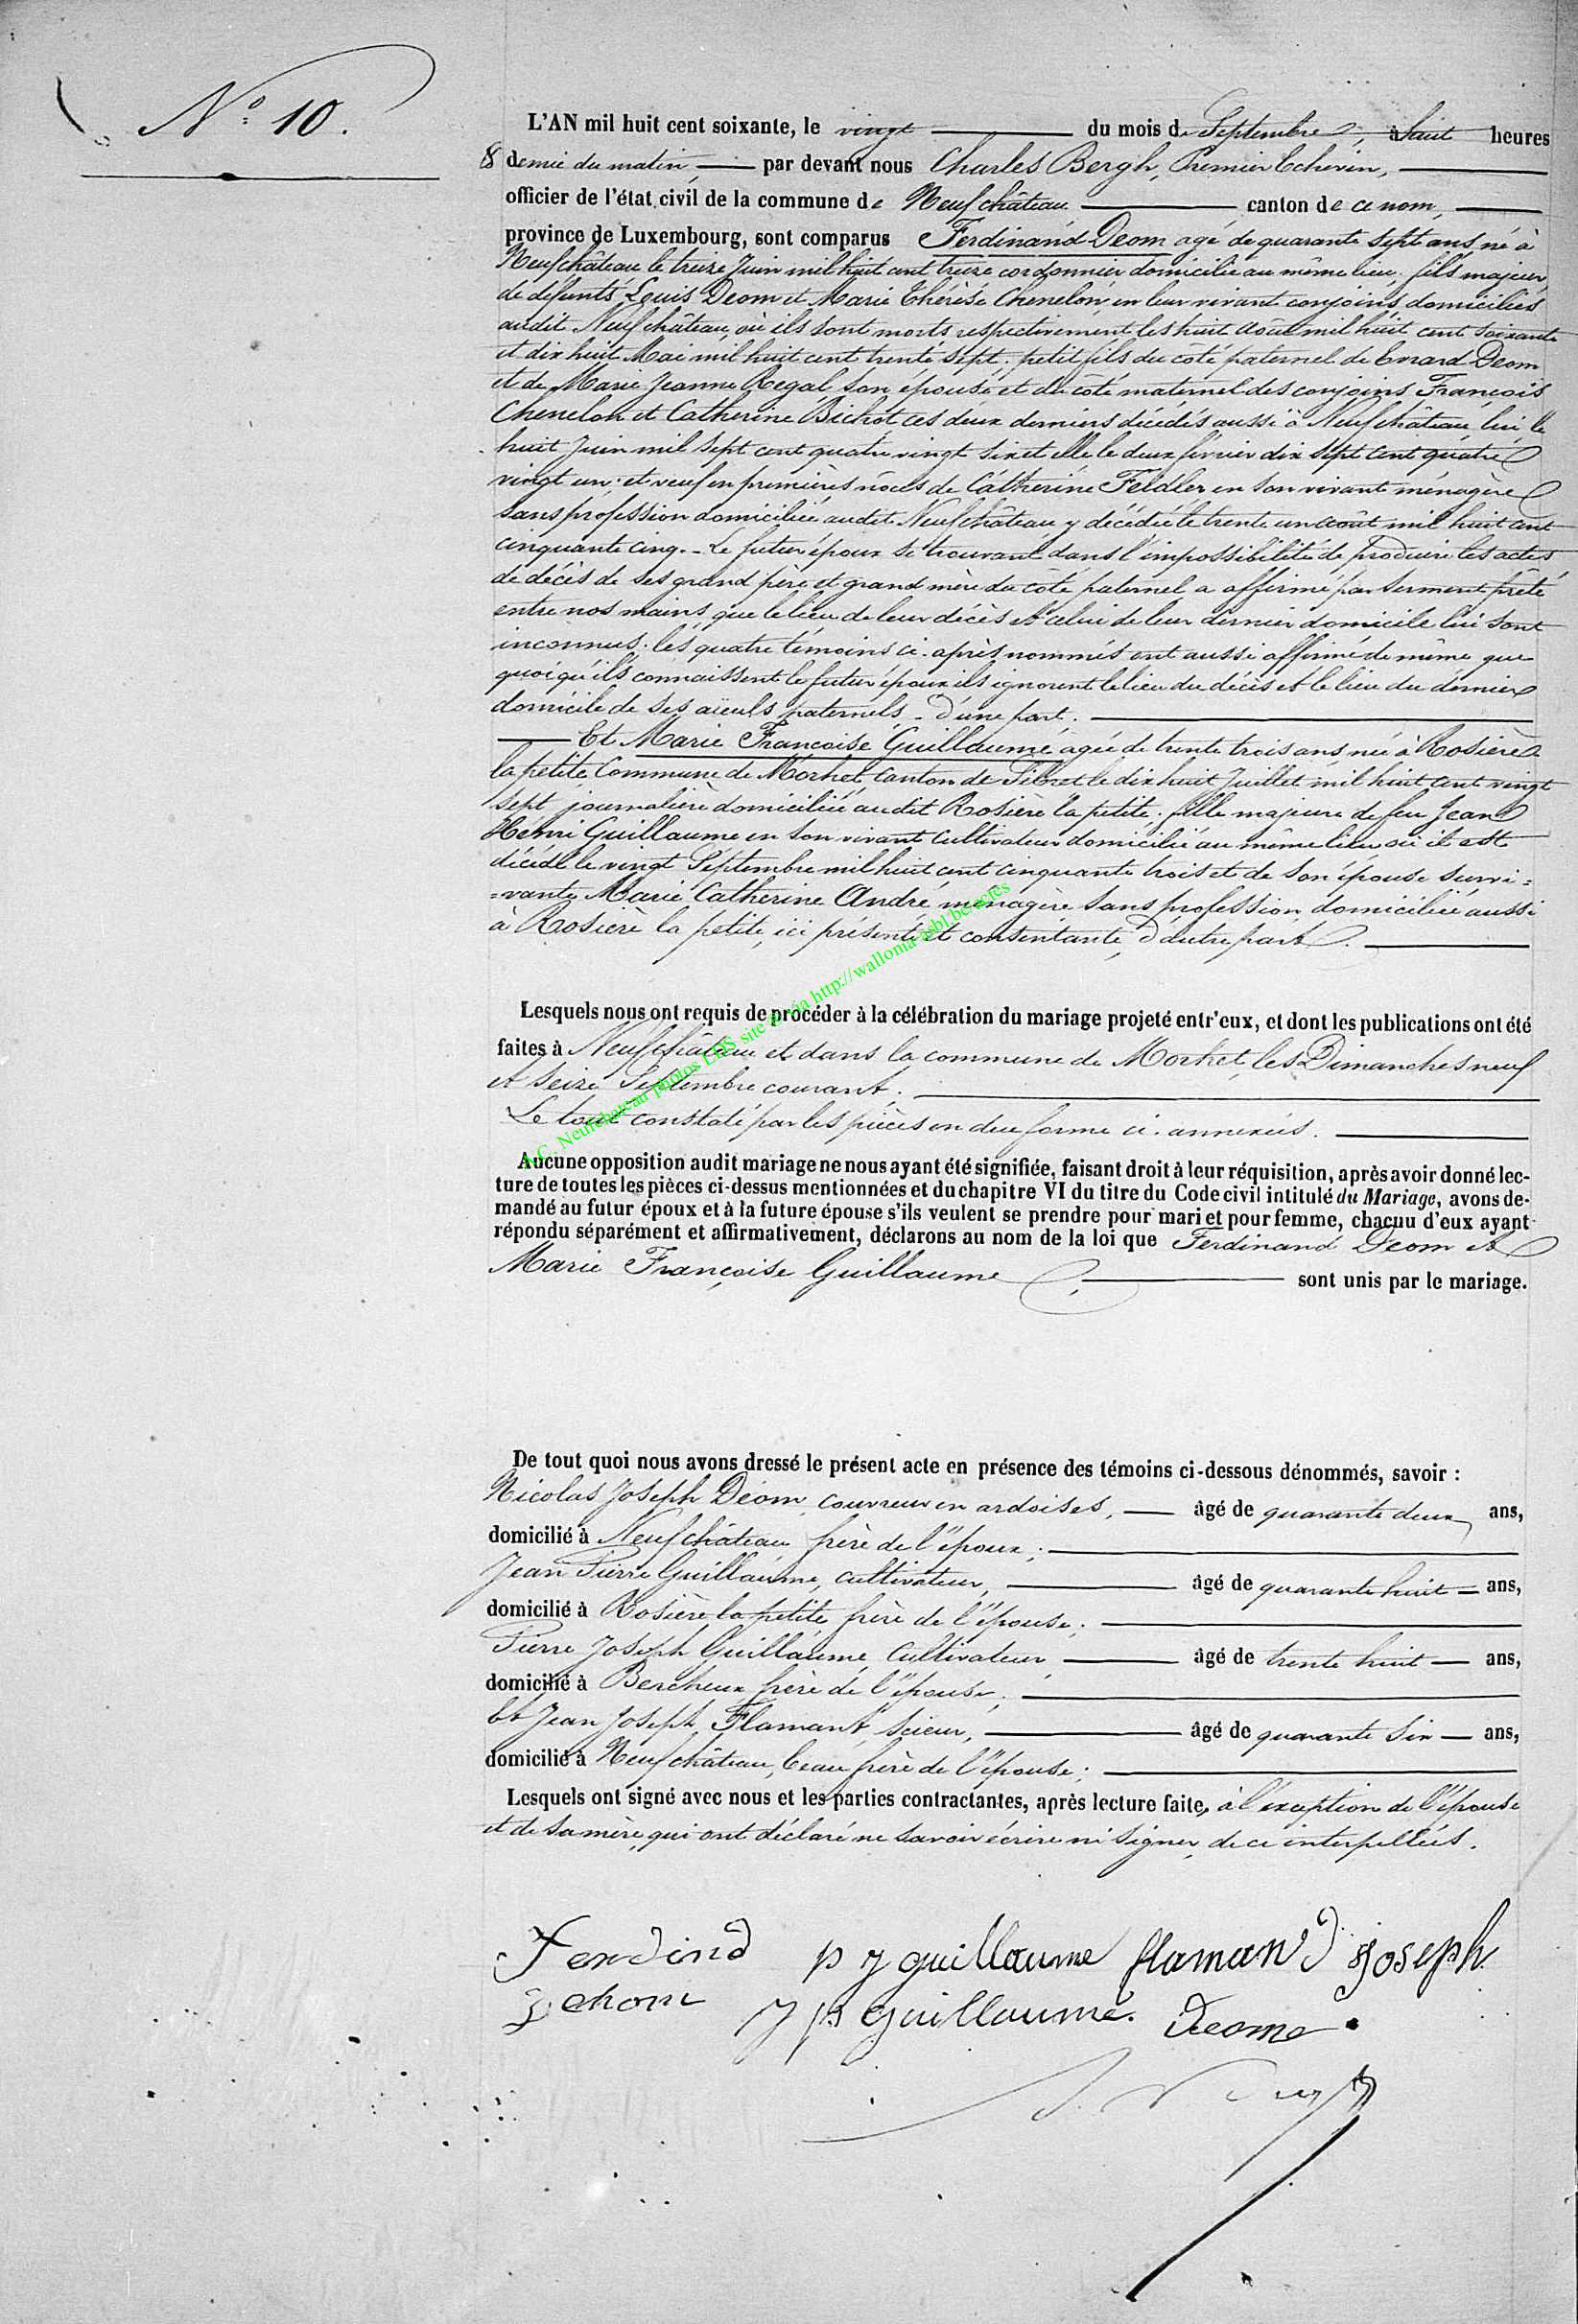 N° 10.
L'AN mil huit cent soixante, le vingt du mois de Septembre, à huit heures
& demie du matin, par devant nous Charles Bergh, Premier Echevin,
officier de l'état civil de la commune de Neufchâteau canton de ce nom,
province de Luxembourg, sont comparus Ferdinand Deom agé de quarante sept ans, né à
Neufchâteau le treize Juin mil huit cent treize cordonnier domicilié au même lieu, fils majeur
de défunts Louis Deom et Marie Thérèse Chenelon, en leur vivant conjoins, domiciliés
audit Neufchâteau, où ils sont morts respectivement les huit Août mil huit cent soixante
et dix huit Mai mil huit cent trente sept; petit fils du côté paternel de Evrard Deom
et de Marie Jeanne Regal son épouse et du côté maternel des conjoins François
Chenelon et Catherine Bichot ces deux derniers décédés aussi à Neufchâteau, lui le
huit Juin mil sept cent quatre vingt six et elle le deux février dix sept cent quatre
vingt un; et veuf en premières nôces de Catherine Feldler en son vivant ménagère
sans profession domiciliée audit Neufchâteau y décédée le trente un août mil huit cent
cinquante cinq. - Le futur époux se trouvant dans l'impossibilité de produire les actes
de décès de ses grand père et grand mère du côté paternel a affirmé par serment prêté
entre nos mains, que le lieu de leur décès et celui de leur dernier domicile lui sont
inconnus; les quatre témoins ci-après nommés ont aussi affirmé de même que
quoiqu'ils connaissent le futur époux ils ignorent le lieu du décès et le lieu du dernier
domicile de ses aïeuls paternels - D'une part.
Et Marie Françoise Guillaume agée de trente trois ans, née à Rosière
la petite, Commune de Morhet, Canton de Sibret le dix huit Juillet mil huit cent vingt
sept, journalière domiciliée audit Rosière la petite, fille majeure de feu Jean
Henri Guillaume en son vivant cultivateur domicilié au même lieu où il est
décédé le vingt Septembre mil huit cent cinquante trois et de son épouse survi=
=vante Marie Catherine André, ménagère sans profession domiciliée aussi
à Rosière la petite, ici présente et consentante, d'autre part.
Lesquels nous ont requis de procéder à la célébration du mariage projeté entr'eux, et dont les publications ont été
faites à Neufchâteau et dans la commune de Morhet, les Dimanches neuf
et seize Septembre courant;
Le tout constaté par les pièces en due forme ci-annexées.
A.C. Neufchateau photos LDS site via http://wallonia-asbl.be/actes
Aucune opposition audit mariage ne nous ayant été signifiée, faisant droit à leur réquisition, après avoir donné lec-
ture de toutes les pièces ci-dessus mentionnées et du chapitre VI du titre du Code civil intitulé du Mariage, avons de-
mandé au futur époux et à la future épouse s'ils veulent se prendre pour mari et pour femme, chacnu d'eux ayant
répondu séparément et affirmativement, déclarons au nom de la loi que Ferdinand Deom et
Marie Françoise Guillaume sont unis par le mariage.
De tout quoi nous avons dressé le présent acte en présence des témoins ci-dessous dénommés, savoir :
Nicolas Joseph Déom, couvreur en ardoises, âgé de quarante deux ans,
domicilié à Neufchâteau frère de l'époux;
Jean Pierre Guillaume, cultivateur, âgé de quarante huit ans,
domicilié à Rosière la petite frère de l'épouse;
Pierre Joseph Guillaume, cultivateur, âgé de trente huit ans,
domicilié à Bercheux frère de l'épouse;
Et Jean Joseph Flamant, scieur, âgé de quarante six ans,
domicilié à Neufchâteau, beau frère de l'épouse;
Lesquels ont signé avec nous et les parties contractantes, après lecture faite, à l'exception de l'épouse
et de sa mère, qui ont déclaré ne savoir écrire ni signer, de ce interpellées.
Ferdind p j guillaume flamand joseph
j p guillaume. Deome